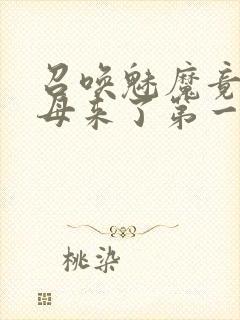 召唤魅魔竟
母来了第一
桃染